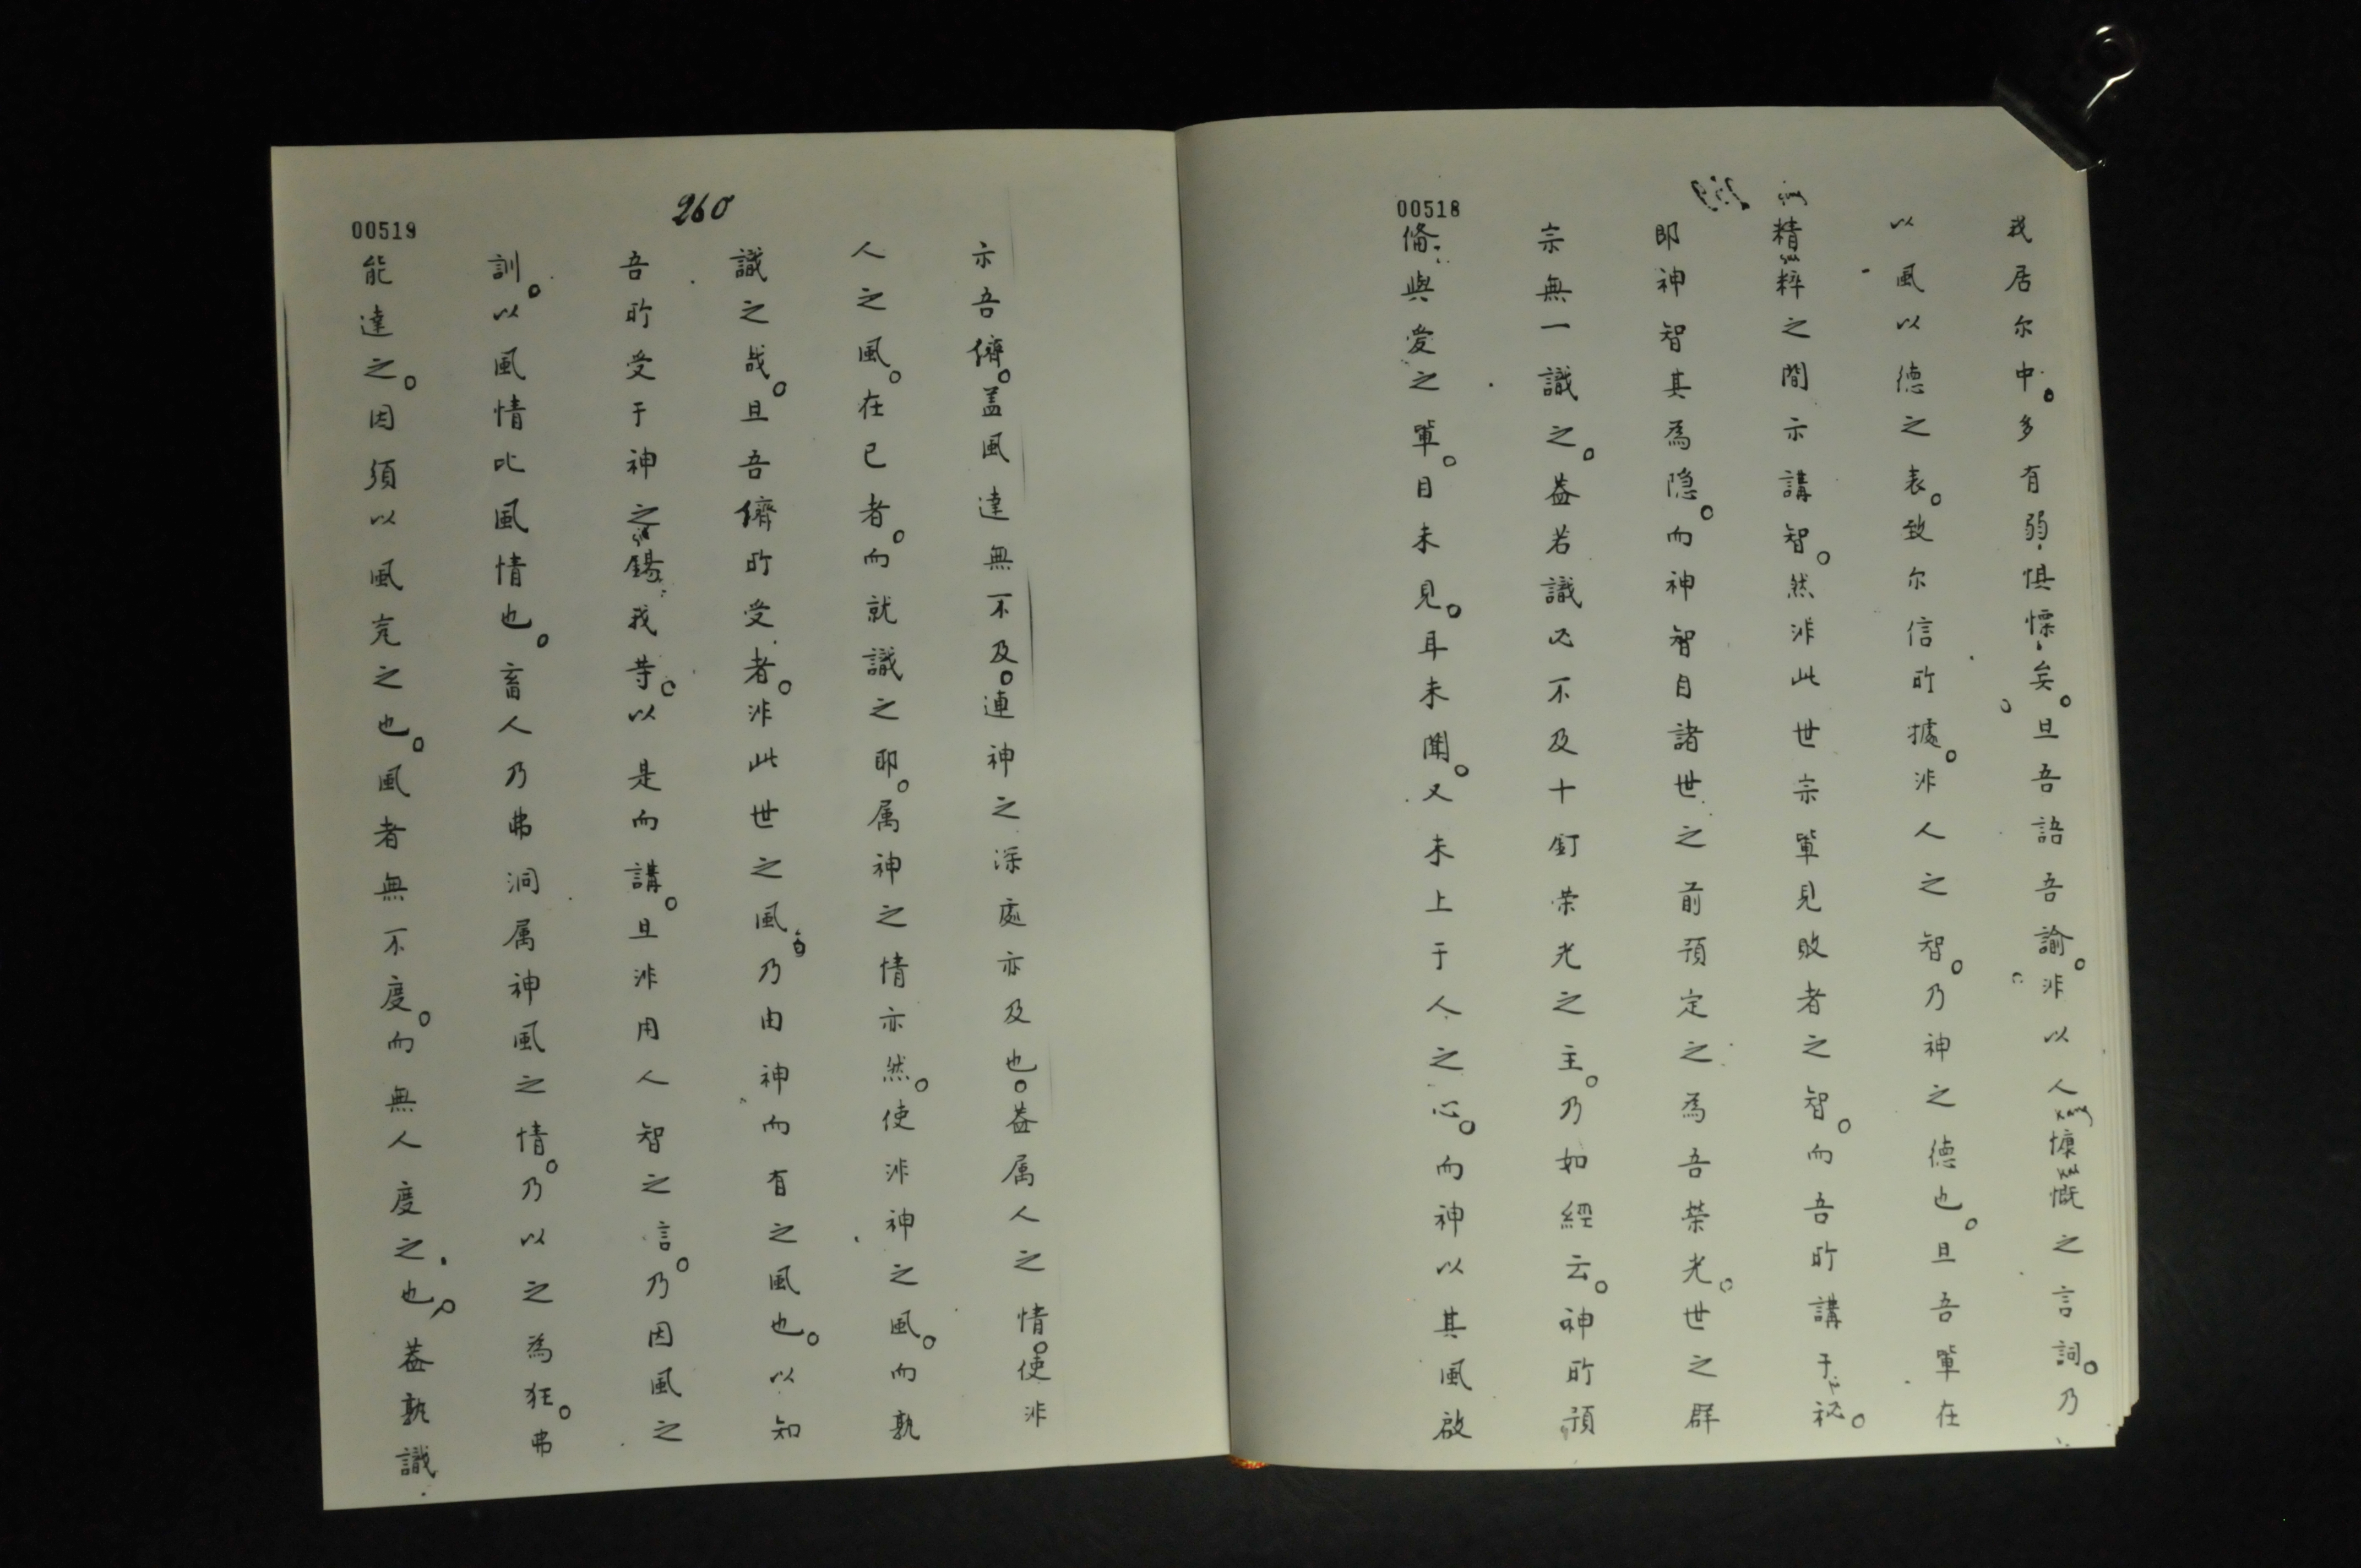 00518
我居尔中。多有弱惧慄矣。且吾語吾諭。非以人慷慨之言詞。乃
以風以德之表。致尔信所據。非人之智。乃神之德也。且吾輩在
精粹之間示講智。然非此世宗輩見敗者之智。而吾所講于秘。
即神智其為隐。而神智自諸世之前預定之為吾荣光。世之群
宗無一識之。盖若識必不及十釘荣光之主。乃如經云。神所預
俻與爱之輩。目未見。耳未聞。又未上于人之心。而神以其風啟
260
00519
示吾儕。盖風達無不及。連神之深處亦及也。盖属人之情。使非
人之風。在已者。而就識之耶。属神之情亦然。使非神之風。而孰
識之哉。且吾儕所受者。非此世之風。乃由神而有之風也。以知
吾所受于神之錫我等。以是而講。且非用人智之言。乃因風之
訓。以風情比風情也。畜人乃弗洞属神風之情。乃以之為狂。弗
能達之。因須以風克之也。風者無不度。而無人度之也。盖孰識